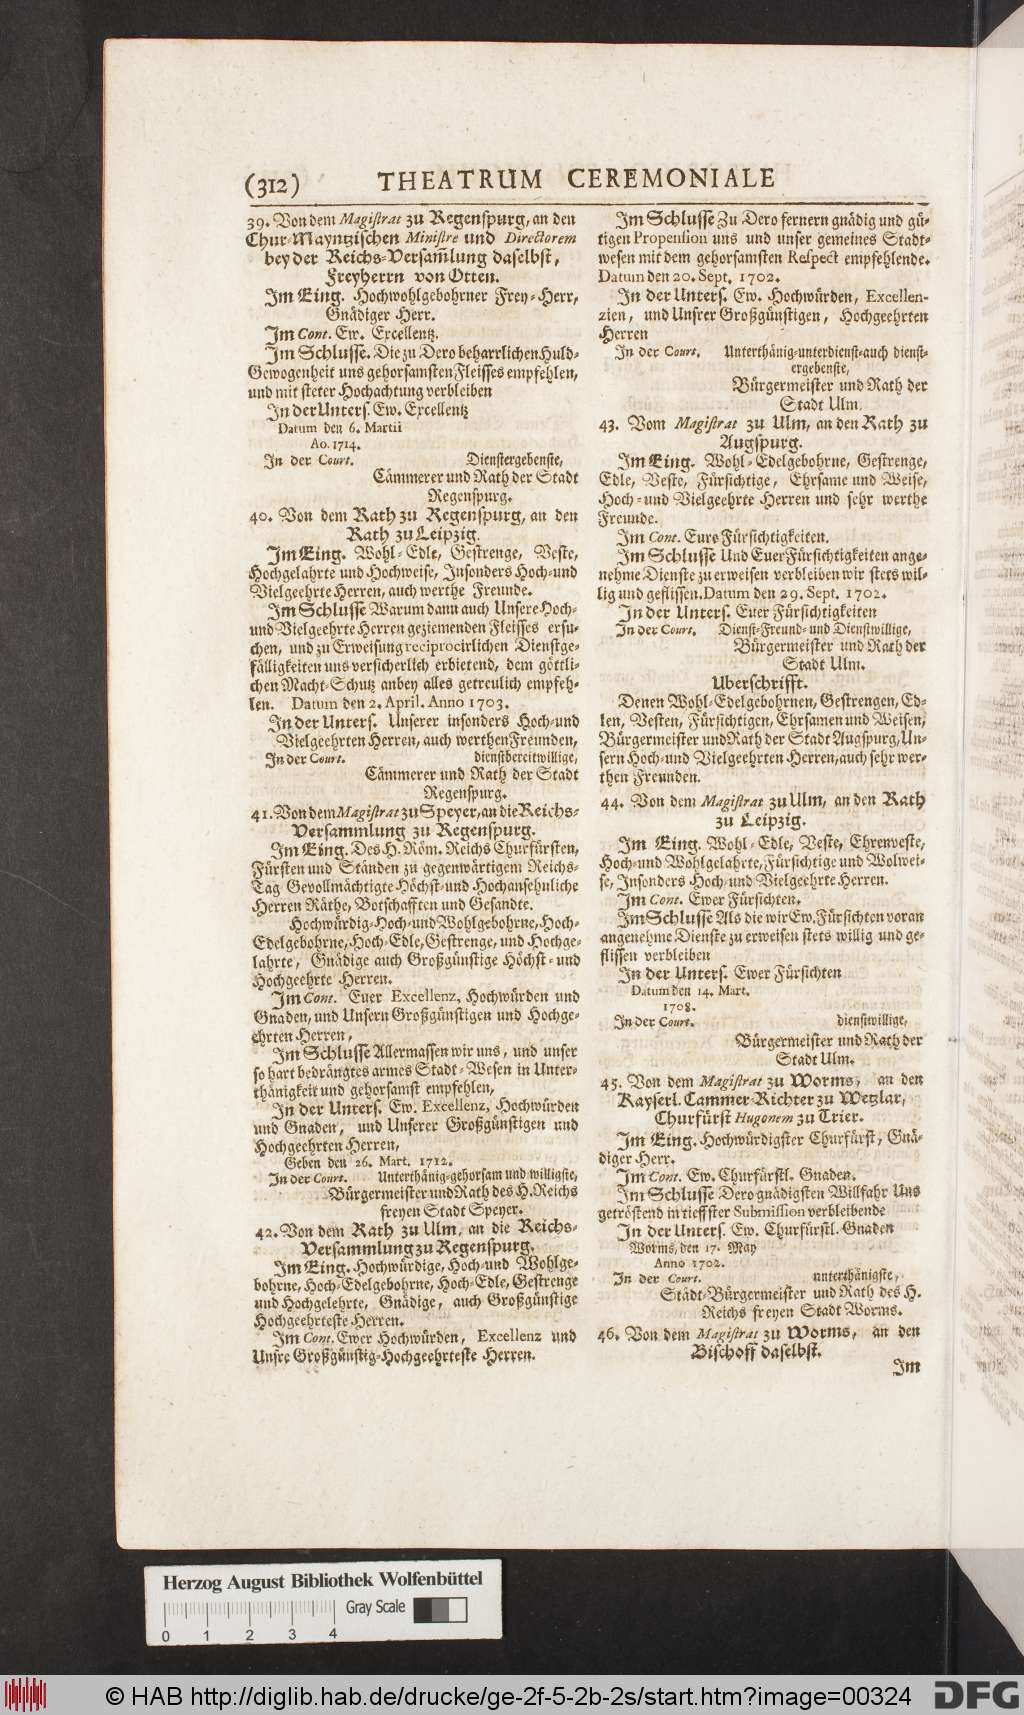 (312) THEATRUM CEREMONIALE
39. Von dem Magistrat zu Regenspurg, an den
Chur-Mayntzischen Ministre und Directorem
bey der Reichs-Versam̃lung daselbst,
Freyherrn von Otten.
Im Eing. Hochwohlgebohrner Frey-Herr,
Gnädiger Herr.
Im Cont. Ew. Excellentz.
Im Schlusse. Die zu Dero beharrlichen Huld-
Gewogenheit uns gehorsamsten Fleisses empfehlen,
und mit steter Hochachtung verbleiben
In der Unters. Ew. Excellentz
Datum den 6. Martii
Ao. 1714.
In der Court. Dienstergebenste,
Cämmerer und Rath der Stadt
Regenspurg.
40. Von dem Rath zu Regenspurg, an den
Rath zu Leipzig.
Im Eing. Wohl-Edle, Gestrenge, Veste,
Hochgelahrte und Hochweise, Insonders Hoch-und
Vielgeehrte Herren, auch werthe Freunde.
Im Schlusse Warum dann auch Unsere Hoch-
und Vielgeehrte Herren geziemenden Fleisses ersu-
chen, und zu Erweisung reciprocirlichen Dienstge-
fälligkeiten uns versicherlich erbietend, dem göttli-
chen Macht-Schutz anbey alles getreulich empfeh-
len. Datum den 2. April. Anno 1703.
In der Unters. Unserer insonders Hoch-und
Vielgeehrten Herren, auch werthen Freunden,
In der Court. dienstbereitwillige,
Cämmerer und Rath der Stadt
Regenspurg.
41. Von dem Magistrat zu Speyer, an die Reichs-
Versammlung zu Regenspurg.
Im Eing. Des H. Röm. Reichs Churfürsten,
Fürsten und Ständen zu gegenwärtigem Reichs-
Tag Gevollmächtigte Höchst-und Hochansehnliche
Herren Räthe, Botschafften und Gesandte.
Hochwürdig-Hoch-und Wohlgebohrne, Hoch-
Edelgebohrne, Hoch-Edle, Gestrenge, und Hochge-
lahrte, Gnädige auch Großgünstige Höchst-und
Hochgeehrte Herren.
Im Cont. Euer Excellenz, Hochwürden und
Gnaden, und Unsern Großgünstigen und Hochge-
ehrten Herren,
Im Schlusse Allermassen wir uns, und unser
so hart bedrängtes armes Stadt-Wesen in Unter-
thänigkeit und gehorsamst empfehlen,
In der Unters. Ew. Excellenz, Hochwürden
und Gnaden, und Unserer Großgünstigen und
Hochgeehrten Herren,
Geben den 26. Mart. 1712.
In der Court. Unterthänig-gehorsam und willigste,
Bürgermeister und Rath des H. Reichs
freyen Stadt Speyer.
42. Von dem Rath zu Ulm, an die Reichs-
Versammlung zu Regenspurg.
Im Eing. Hochwürdige, Hoch-und Wohlge-
bohrne, Hoch-Edelgebohrne, Hoch-Edle, Gestrenge
und Hochgelehrte, Gnädige, auch Großgünstige
Hochgeehrteste Herren.
Im Cont. Ewer Hochwürden, Excellenz und
Unsre Großgünstig-Hochgeehrteste Herren.
Im Schlusse Zu Dero fernern gnädig und gü-
tigen Propension uns und unser gemeines Stadt-
wesen mit dem gehorsamsten Respect empfehlende.
Datum den 20. Sept. 1702.
In der Unters. Ew. Hochwürden, Excellen-
zien, und Unsrer Großgünstigen, Hochgeehrten
Herren
In der Court. Unterthänig-unterdienst-auch dienst-
ergebenste,
Bürgermeister und Rath der
Stadt Ulm.
43. Vom Magistrat zu Ulm, an den Rath zu
Augspurg.
Im Eing. Wohl-Edelgebohrne, Gestrenge,
Edle, Veste, Fürsichtige, Ehrsame und Weise,
Hoch-und Vielgeehrte Herren und sehr werthe
Freunde.
Im Cont. Eure Fürsichtigkeiten.
Im Schlusse Und Euer Fürsichtigkeiten ange-
nehme Dienste zu erweisen verbleiben wir stets wil-
lig und geflissen. Datum den 29. Sept. 1702.
In der Unters. Euer Fürsichtigkeiten
In der Court. Dienst-Freund-und Dienstwillige,
Bürgermeister und Rath der
Stadt Ulm.
Uberschrifft.
Denen Wohl-Edelgebohrnen, Gestrengen, Ed-
len, Vesten, Fürsichtigen, Ehrsamen und Weisen,
Bürgermeister und Rath der Stadt Augspurg, Un-
sern Hoch-und Vielgeehrten Herren, auch sehr wer-
then Freunden.
44. Von dem Magistrat zu Ulm, an den Rath
zu Leipzig.
Im Eing. Wohl-Edle, Veste, Ehrenveste,
Hoch-und Wohlgelahrte, Fürsichtige und Wolwei-
se, Insonders Hoch-und Vielgeehrte Herren.
Im Cont. Ewer Fürsichten.
Im Schlusse Als die wir Ew. Fürsichten voran
angenehme Dienste zu erweisen stets willig und ge-
flissen verbleiben
In der Unters. Ewer Fürsichten
Datum den 14. Mart.
1708.
In der Court. dienstwillige,
Bürgermeister und Rath der
Stadt Ulm.
45. Von dem Magistrat zu Worms, an den
Kayserl. Cammer-Richter zu Wetzlar,
Churfürst Hugonem zu Trier.
Im Eing. Hochwürdigster Churfürst, Gnä-
diger Herr.
Im Cont. Ew. Churfürstl. Gnaden.
Im Schlusse Dero gnädigsten Willfahr Uns
getröstend in tieffster Submission verbleibende
In der Unters. Ew. Churfürstl. Gnaden
Worms, den 17. May
Anno 1702.
In der Court. unterthänigste,
Städt-Bürgermeister und Rath des H.
Reichs freyen Stadt Worms.
46. Von dem Magistrat zu Worms, an den
Bischoff daselbst.
Im
Herzog August Bibliothek Wolfenbüttel
Gray Scale
0 1 2 3 4
© HAB http://diglib.hab.de/drucke/ge-2f-5-2b-2s/start.htm?image=00324
DFG